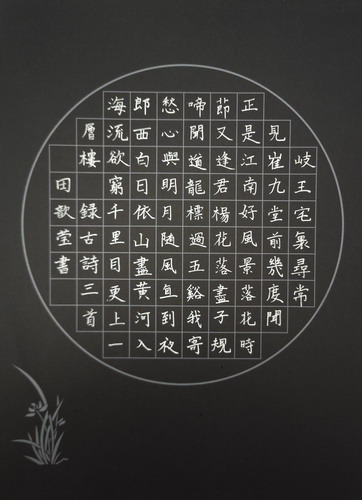 岐王宅裏尋常
見崔九堂前幾度聞
正是江南好風景落花時
節又逢君楊花落盡子規
啼聞道龍標過五谿我寄
愁心與明月隨風直到夜
郎西白日依山盡黃河入
海流欲窮千里目更上一
層樓 錄古詩三首
田歆莹書